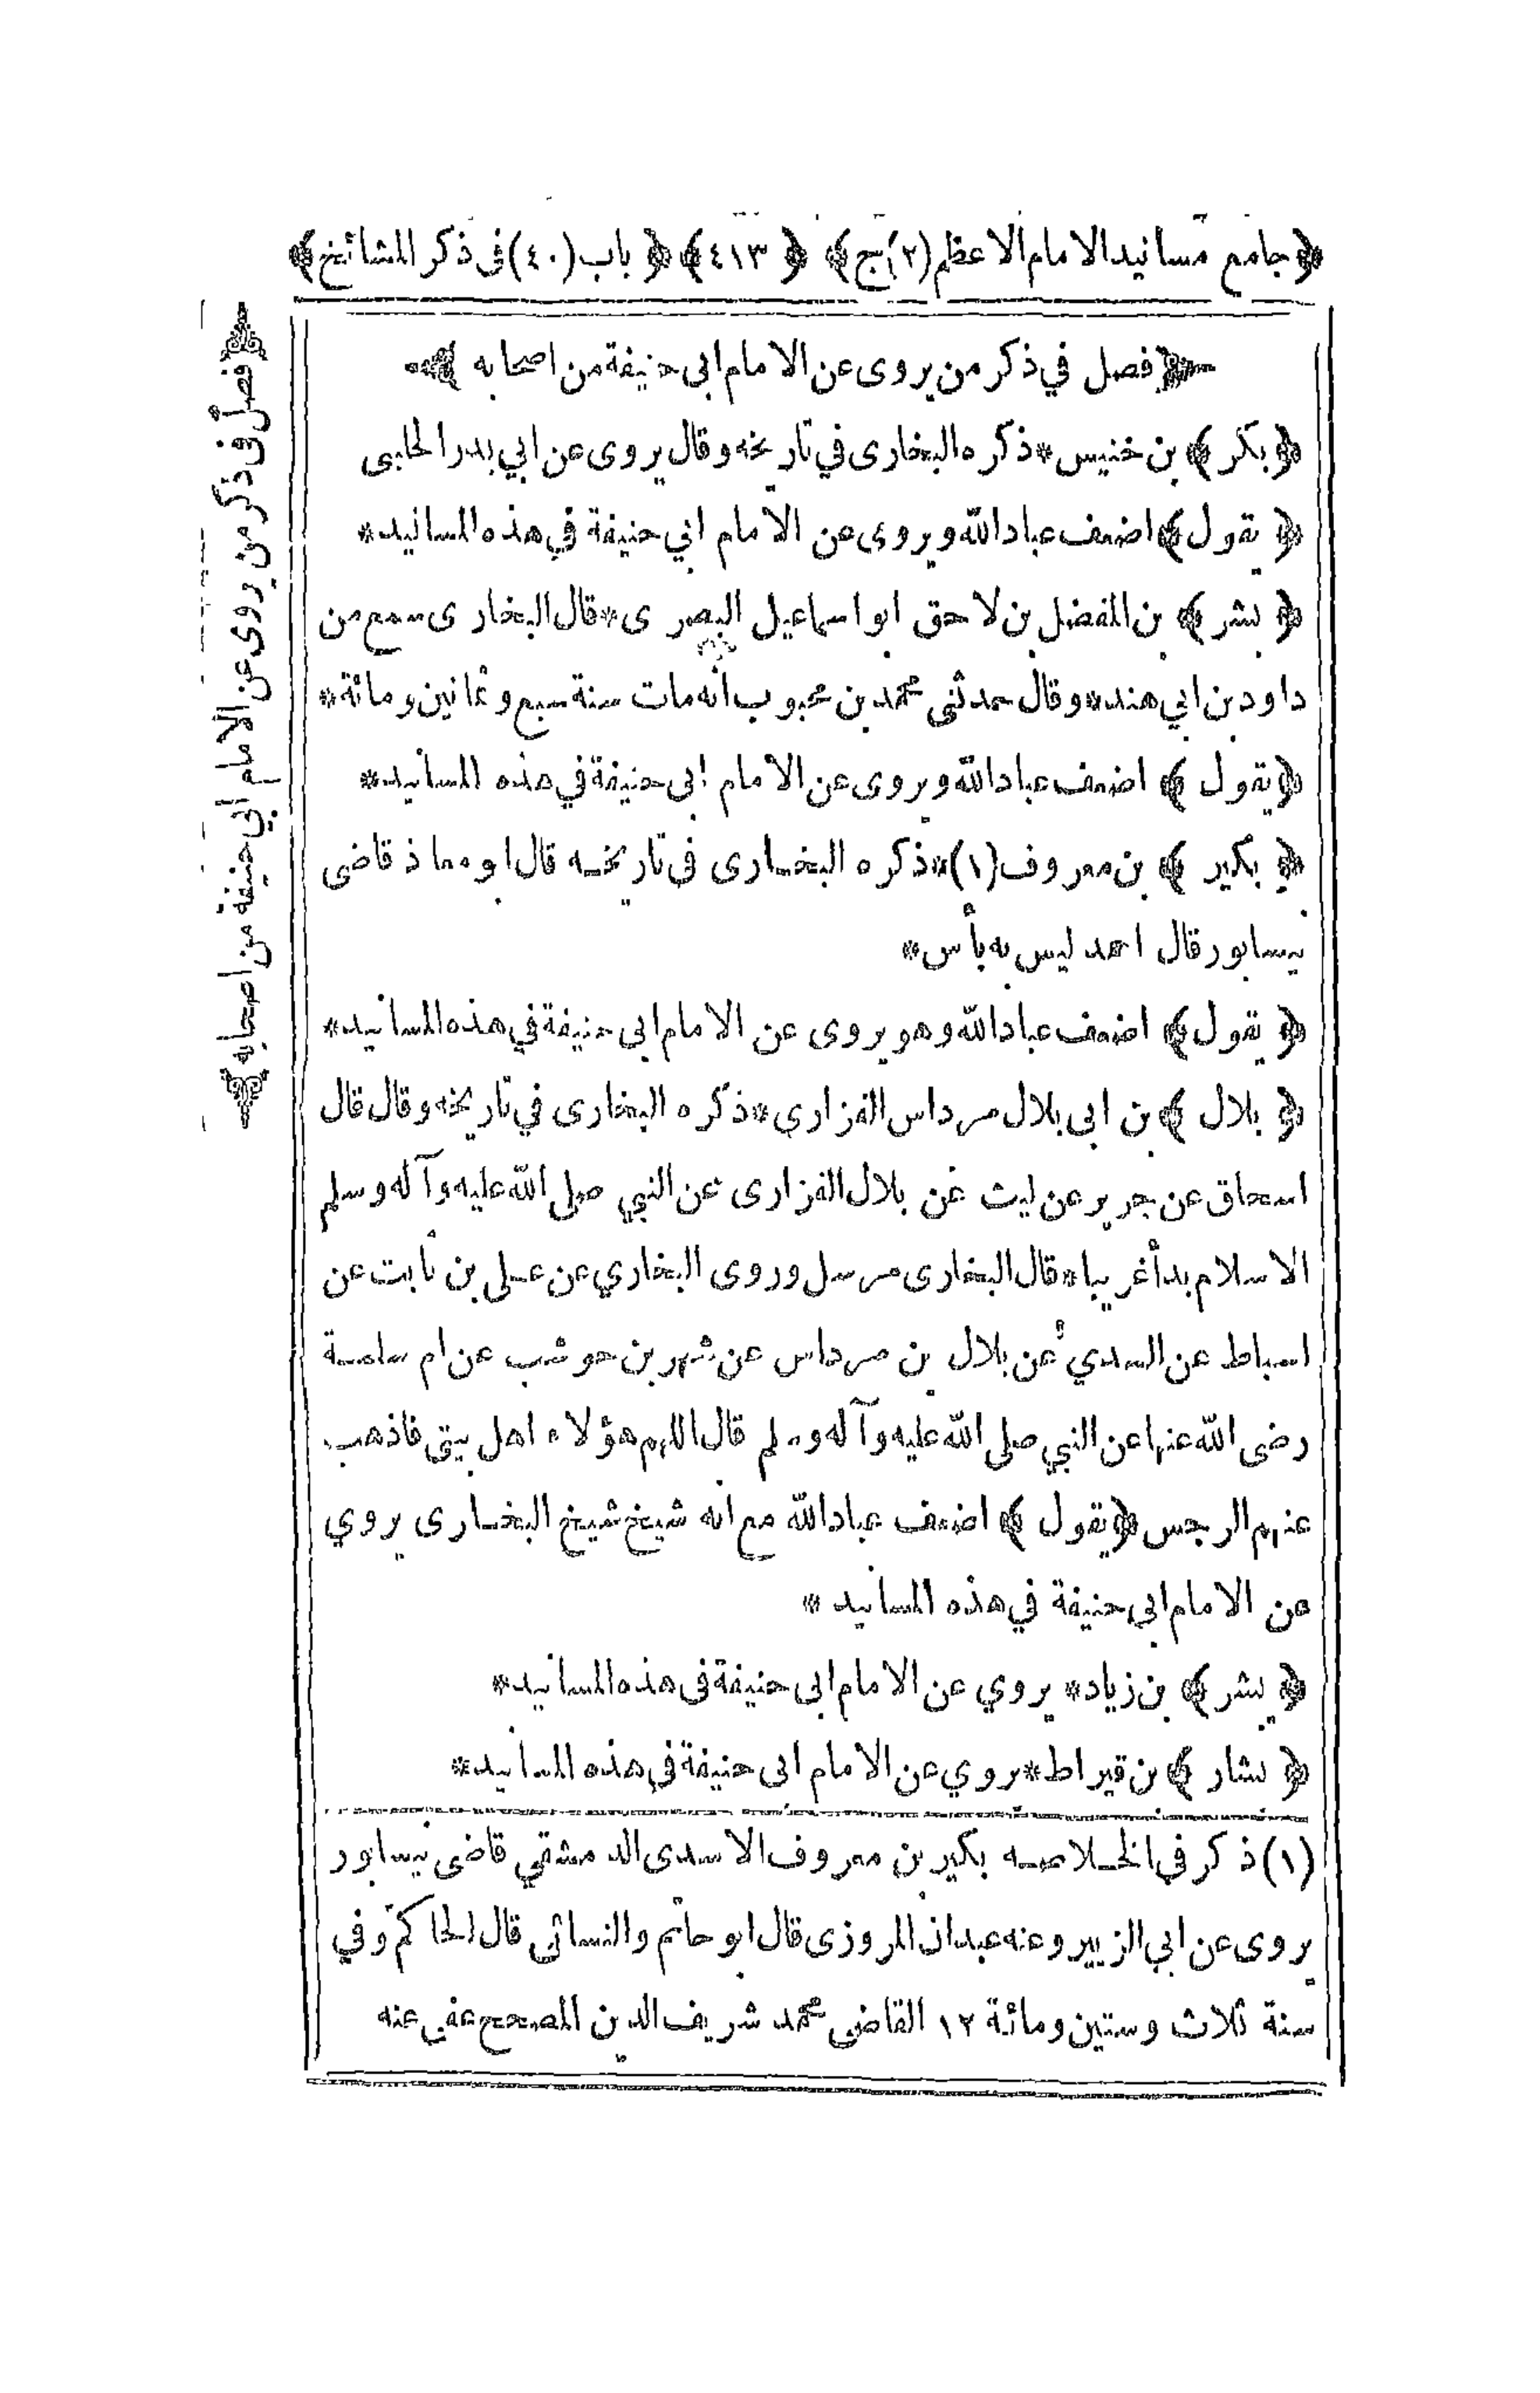 ﴿جامع مسانيد الامام الاعظم (٢) ج﴾ ﴿٤١٣﴾ ﴿باب (٤٠) فى ذكر المشائخ﴾
﴿فصل في ذكر من يروى عن الامام ابى حنيفة من اصحابه﴾
﴿بكر﴾ بن خنيس * ذكره البخارى في تاريخه وقال يروى عن ابي بدر الحلبى
﴿يقول﴾ اضعف عباد الله ويروى عن الامام ابي حنيفة في هذه المسانيد *
﴿بشر﴾ بن المفضل بن لاحق ابو اسماعيل البصرى * قال البخارى سمع من
داود بن ابي هند * وقال حدثنى محمد بن محبوب انه مات سنة سبع وثمانين ومائة *
﴿يقول﴾ اضعف عباد الله ويروى عن الامام ابى حنيفة في هذه المسانيد *
﴿بكير﴾ بن معروف (١) * ذكره البخارى فى تاريخه قال ابو معاذ قاضى
نيسابور قال احمد ليس به بأس *
﴿يقول﴾ اضعف عباد الله وهو يروى عن الامام ابى حنيفة في هذه المسانيد *
﴿بلال﴾ بن ابى بلال مرداس الفزاري * ذكره البخارى في تاريخه وقال قال
اسحاق عن جرير عن ليث عن بلال الفزارى عن النبي صلى الله عليه وآله وسلم
الاسلام بدأ غريبا * قال البخارى مرسل وروى البخاري عن على بن ثابت عن
اسباط عن السدي عن بلال بن مرداس عن شهر بن حوشب عن ام سلمة
رضى الله عنها عن النبي صلى الله عليه وآله وسلم قال اللهم هؤلاء اهل بيتى فاذهب
عنهم الرجس ﴿يقول﴾ اضعف عباد الله مع انه شيخ شيخ البخارى يروي
عن الامام ابى حنيفة في هذه المسانيد *
﴿بشر﴾ بن زياد * يروي عن الامام ابى حنيفة فى هذه المسانيد *
﴿بشار﴾ بن قيراط * يروي عن الامام ابى حنيفة في هذه المسانيد *
(١) ذكر في الخلاصه بكير بن معروف الاسدى الدمشقي قاضى نيسابور
يروى عن ابي الزبير وعنه عبدان المروزى قال ابو حاتم والنسائى قال الحاكم وفي
سنة ثلاث وستين ومائة ١٢ القاضى محمد شريف الدين المصحح عفى عنه
﴿فصل فى ذكر من يروى عن الامام ابي حنيفة من اصحابه﴾